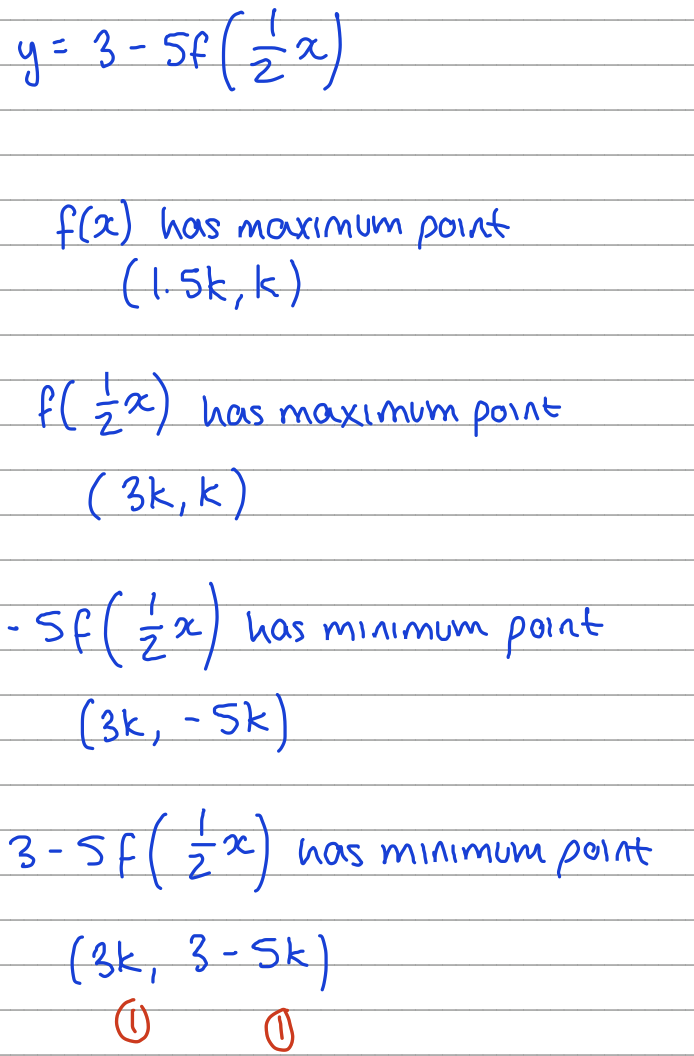 y = 3 - 5f(1/2 x)
f(x) has maximum point
(1.5k, k)
f(1/2 x) has maximum point
(3k, k)
- 5f(1/2 x) has minimum point
(3k, -5k)
3 - 5f(1/2 x) has minimum point
(3k, 3 - 5k)
① ①